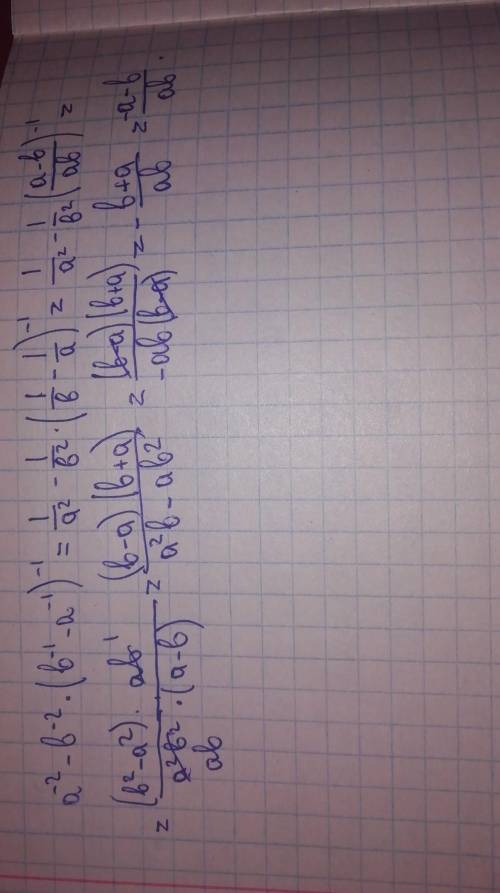 a⁻² - b⁻² · (b⁻¹ - a⁻¹)⁻¹ = 1/a² - 1/b² · (1/b - 1/a)⁻¹ = 1/a² - 1/b² ((a-b)/ab)⁻¹ =
= ((b² - a²) · ab¹)/(a²b² · (a-b)) ab = ((b-a)(b+a))/(a²b - ab²) = ((b-a)(b+a))/(-ab(b-a)) = - (b+a)/ab = (-a-b)/ab .